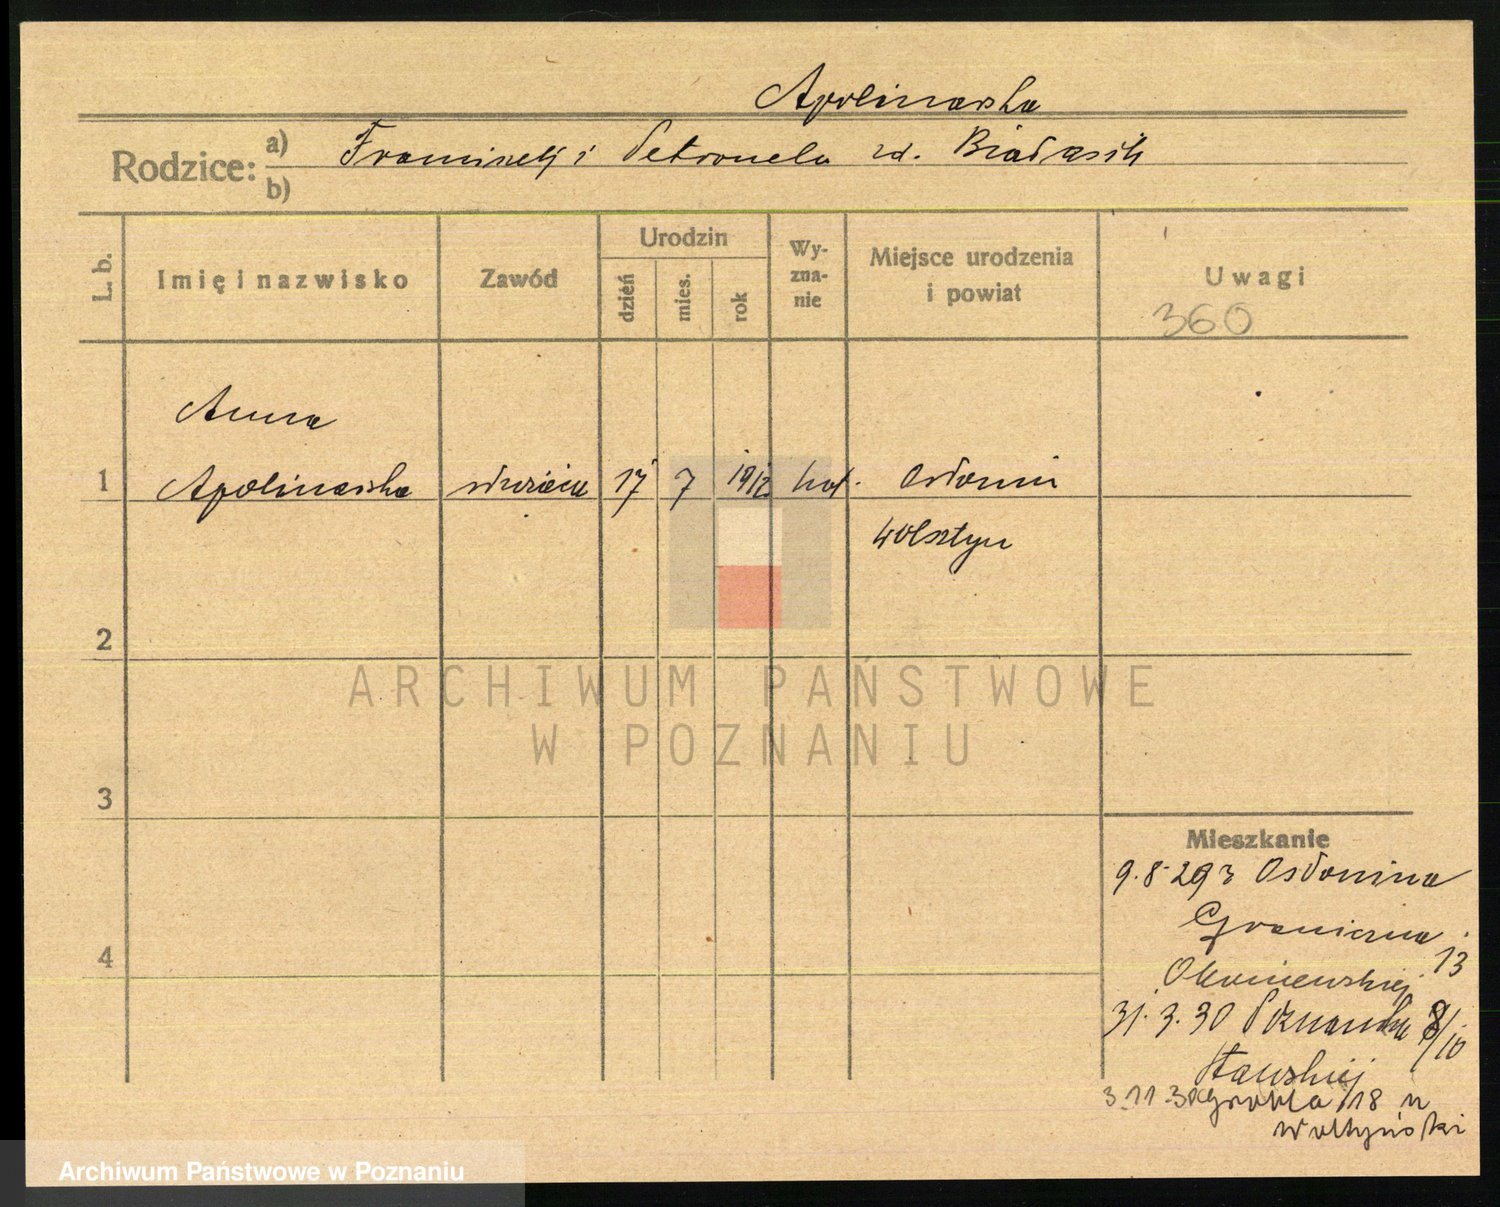 Apolinarska
Rodzice: a) Franciszek i Petronela zd. Białasik
b)
L. b. Imię i nazwisko Zawód Urodzin dzień mies. rok Wyznanie Miejsce urodzenia i powiat Uwagi
360
Anna
1 Apolinarska służąca 17 7 1912 kat. Osłonin
Wolsztyn
2
ARCHIWUM PAŃSTWOWE
W POZNANIU
3
Mieszkanie
9.8.293 Osłonina
Graniczna 13
4
31.3.30 Poznańska 8/10
Stawskiej
3.11.30 Grobla 18 u
Wołtyński
Archiwum Państwowe w Poznaniu